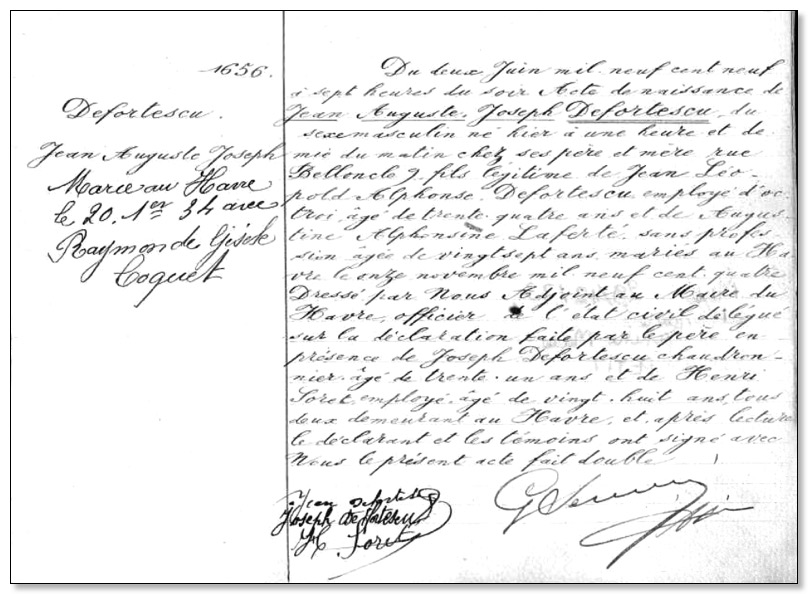 1656.
Defortescu.
Jean Auguste Joseph
Marié au Havre
le 20. 1er 34 avec
Raymonde Gisèle
Coquet
Du deux Juin mil neuf cent neuf
à sept heures du soir Acte de naissance de
Jean Auguste Joseph Defortescu, du
sexe masculin né hier à une heure et de-
mie du matin chez ses père et mère rue
Bellencle 9, fils légitime de Jean Léo-
pold Alphonse Defortescu, employé d'oc-
troi, âgé de trente quatre ans et de Augus-
tine Alphonsine Laferté, sans profes-
sion âgée de vingt sept ans, mariés au Ha-
vre le onze novembre mil neuf cent quatre
Dressé par Nous Adjoint au Maire du
Havre, officier de l'état civil délégué
sur la déclaration faite par le père en
présence de Joseph Defortescu chaudron-
nier âgé de trente un ans et de Henri
Loret, employé, âgé de vingt huit ans, tous
deux demeurant au Havre, et, après lecture
le déclarant et les témoins ont signé avec
Nous le présent acte fait double
Jean Defortescu
Joseph Defortescu
H. Loret